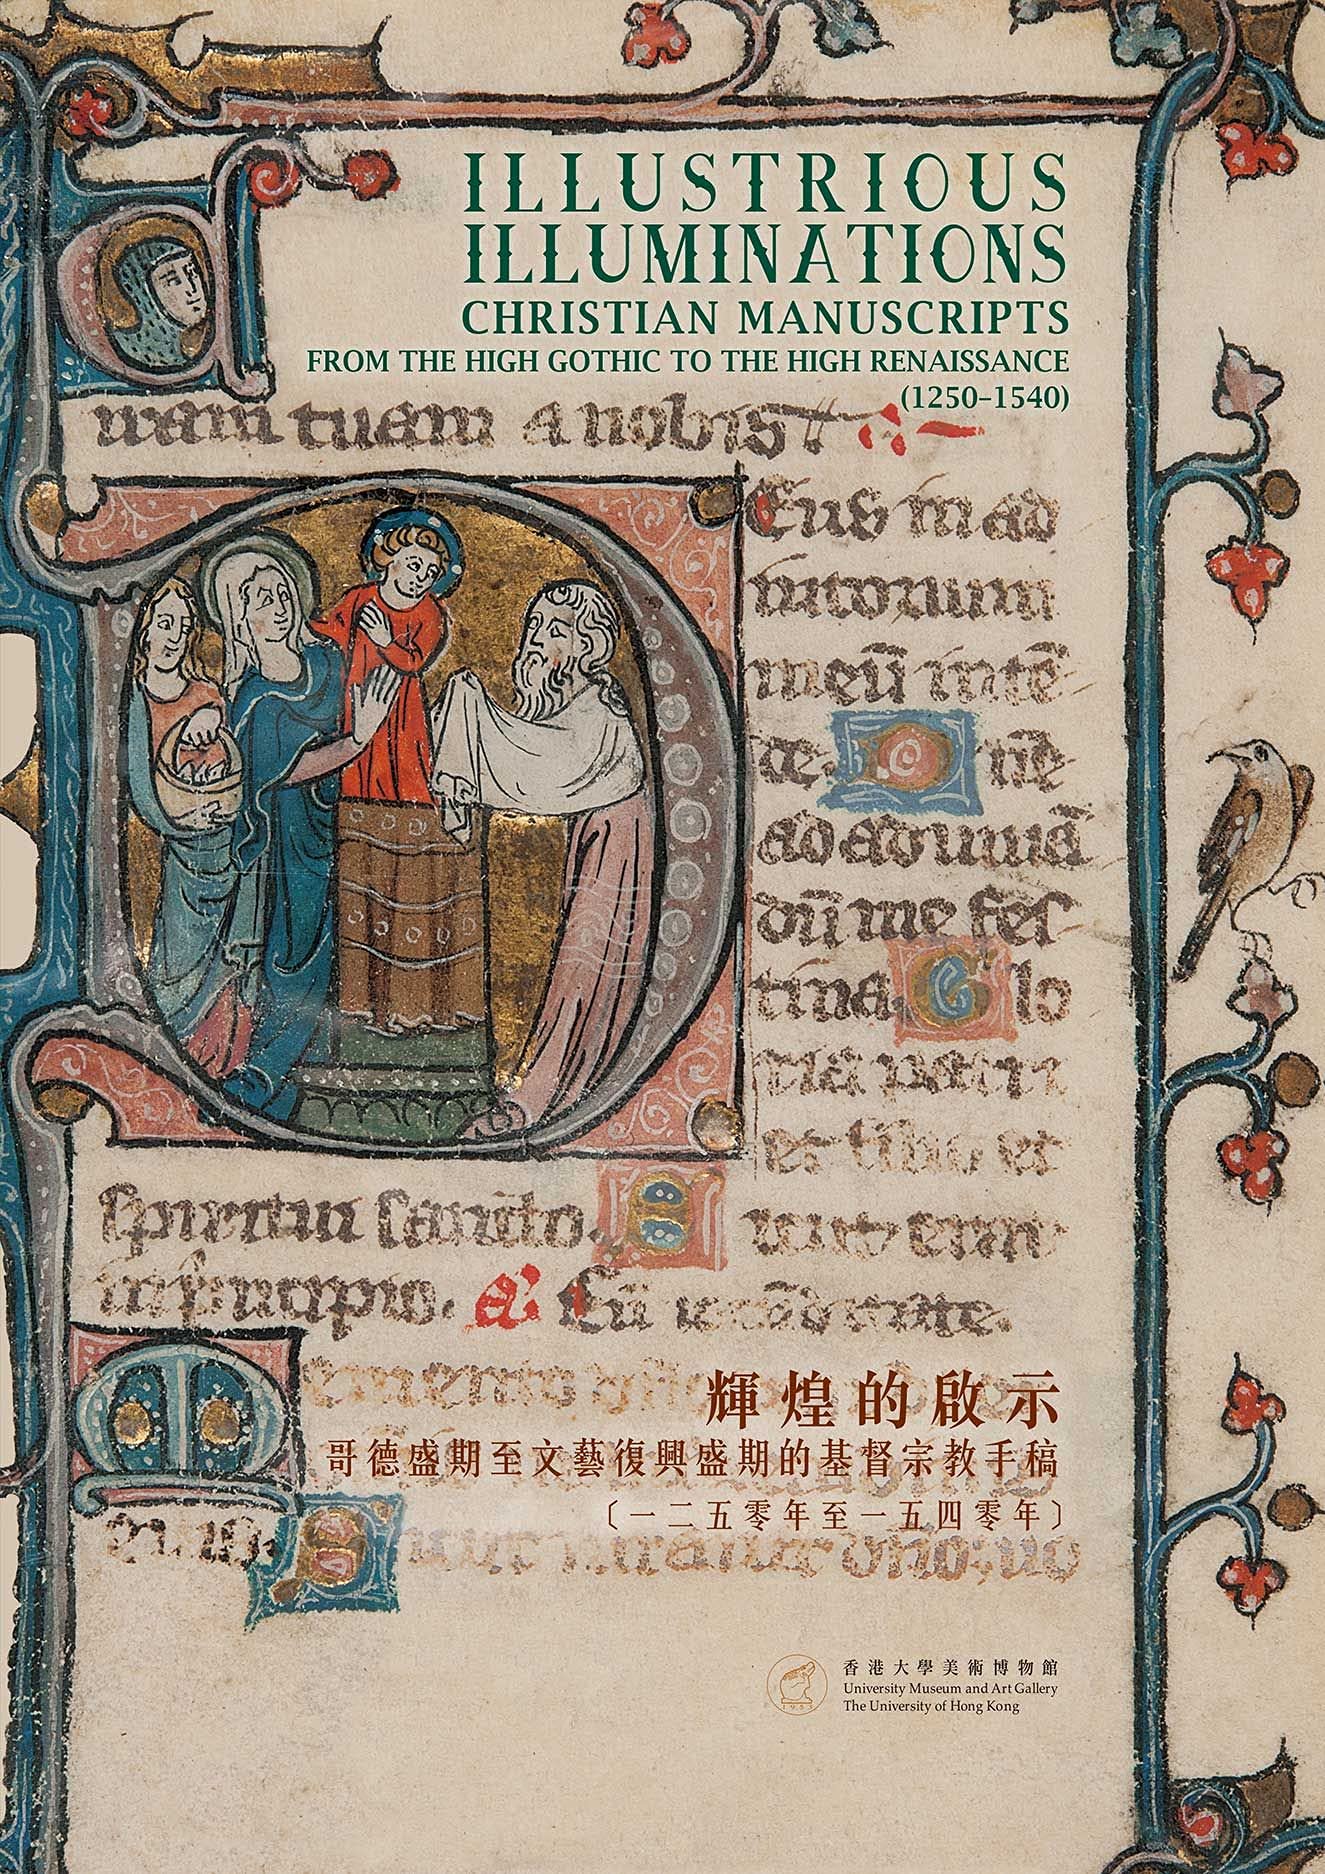 ILLUSTRIOUS
ILLUMINATIONS
CHRISTIAN MANUSCRIPTS
FROM THE HIGH GOTHIC TO THE HIGH RENAISSANCE
(1250–1540)
uram tuam a nobis
Deus in ad
iutorium
meū intē
de. Dn̄e
ad adiuuā
dū me fes
tina. Glo
ria patri
et filio et
spiritui sancto. Sicut erat
in principio.
輝煌的啟示
哥德盛期至文藝復興盛期的基督宗教手稿
〔一二五零年至一五四零年〕
香港大學美術博物館
University Museum and Art Gallery
The University of Hong Kong
1953